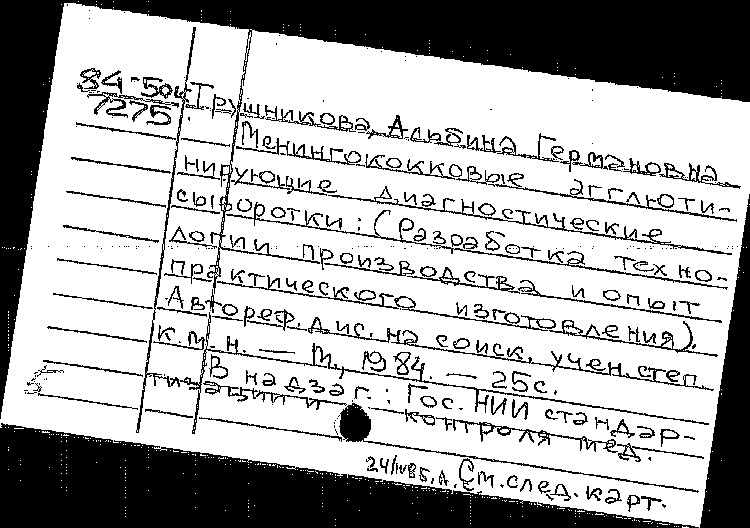 84-50к
7275
Трушникова, Альбина Германовна.
Менингококковые агглюти-
нирующие диагностические
сыворотки: (Разработка техно-
логии производства и опыт
практического изготовления).
Автореф. дис. на соиск. учен. степ.
к.м.н. — М., 1984. — 25с.
В надзаг.: Гос. НИИ стандар-
тизации и контроля мед.
См. след. карт.